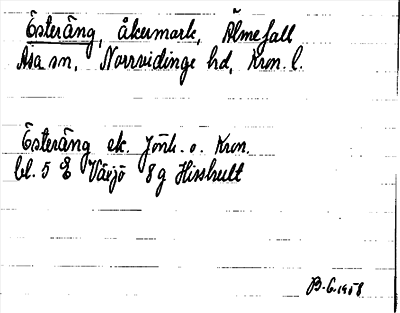 Esteräng, åkermark, Älmefall
Asa sn, Norrvidinge hd, Kron. l.
Esteräng ek. Jönk. o. Kron.
bl. 5 E Växjö 8 g Hisshult
B-G. 1958